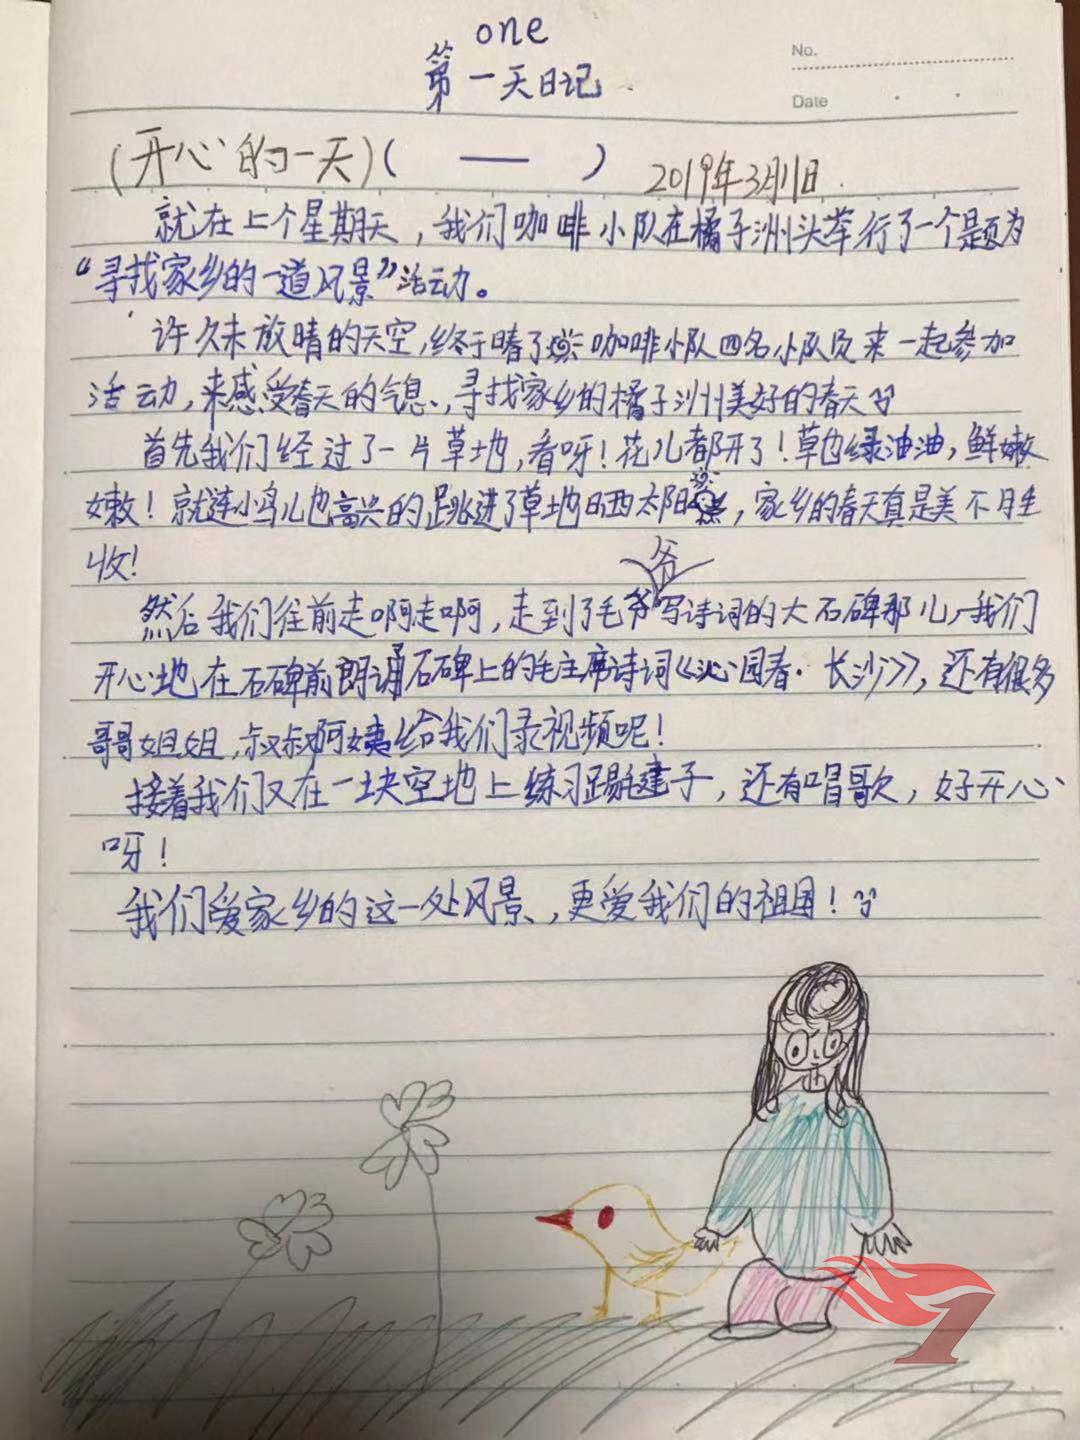 one
第一天日记
No.
Date
(开心的一天)( 一 ) 2019年3月11日
就在上个星期天，我们咖啡小队在橘子洲州头举行了一个题为
“寻找家乡的一道风景”活动。
许久未放晴的天空，终于晴了 咖啡小队四名小队员来一起参加
活动，来感受春天的气息，寻找家乡的橘子洲美好的春天
首先我们经过了一片草地，看呀！花儿都开了！草也绿油油，鲜嫩
嫩！就连小鸟儿也高兴的跳进了草地晒太阳，家乡的春天真是美不胜
收！
爷
然后我们往前走啊走啊，走到了毛爷写诗词的大石碑那儿，我们
开心地在石碑前朗诵石碑上的毛主席诗词《沁园春·长沙》，还有很多
哥哥姐姐，叔叔阿姨给我们录视频呢！
接着我们又在一块空地上练习踢毽子，还有唱歌，好开心
呀！
我们爱家乡的这一处风景，更爱我们的祖国！
1